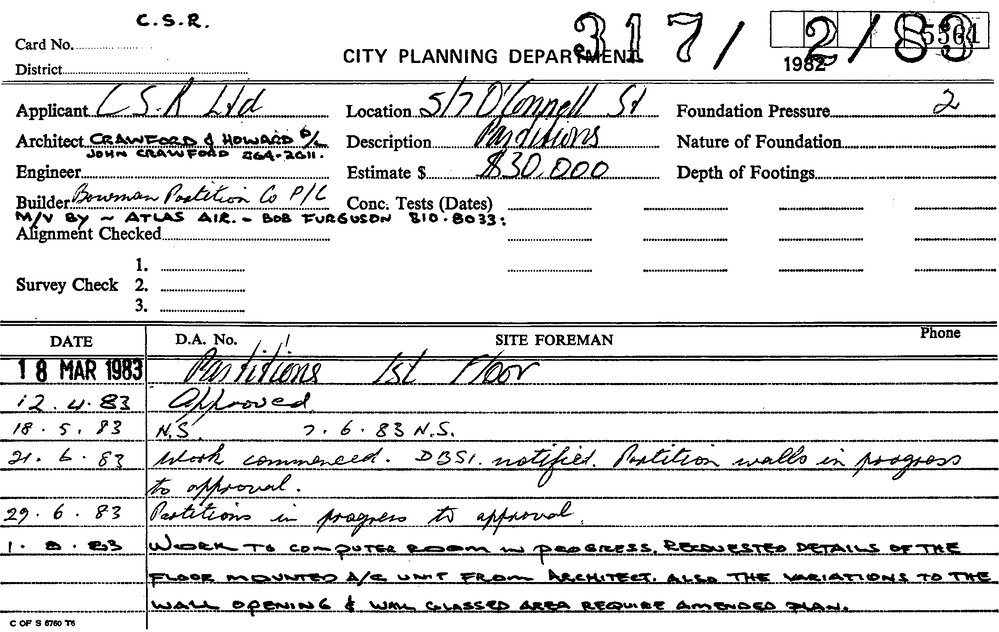 C.S.R.
317/2/83
Card No.
5501
District
CITY PLANNING DEPARTMENT
1982
Applicant C S.R Ltd
Location 5/7 O'Connell St
Foundation Pressure 2
Architect CRAWFORD & HOWARD P/L
JOHN CRAWFORD 264-2611.
Description Partitions
Nature of Foundation
Engineer
Estimate $ $30,000
Depth of Footings
Builder Bowman Partition Co P/L
Conc. Tests (Dates)
M/V BY ~ ATLAS AIR. - BOB FURGUSON 810-8033:
Alignment Checked
Survey Check
1.
2.
3.
DATE D.A. No. SITE FOREMAN Phone
18 MAR 1983 Partitions 1st Floor
12.4.83 Approved
18.5.83 N.S. 7.6.83 N.S.
21.6.83 Work commenced. DBSI. notified. Partition walls in progress
to approval.
29.6.83 Partitions in progress to approval.
1.8.83 WORK TO COMPUTER ROOM IN PROGRESS. REQUESTED DETAILS OF THE
FLOOR MOUNTED A/C UNIT FROM ARCHITECT. ALSO THE VARIATIONS TO THE
WALL OPENING & WALL GLASSED AREA REQUIRE AMENDED PLAN.
C OF S 6760 T6